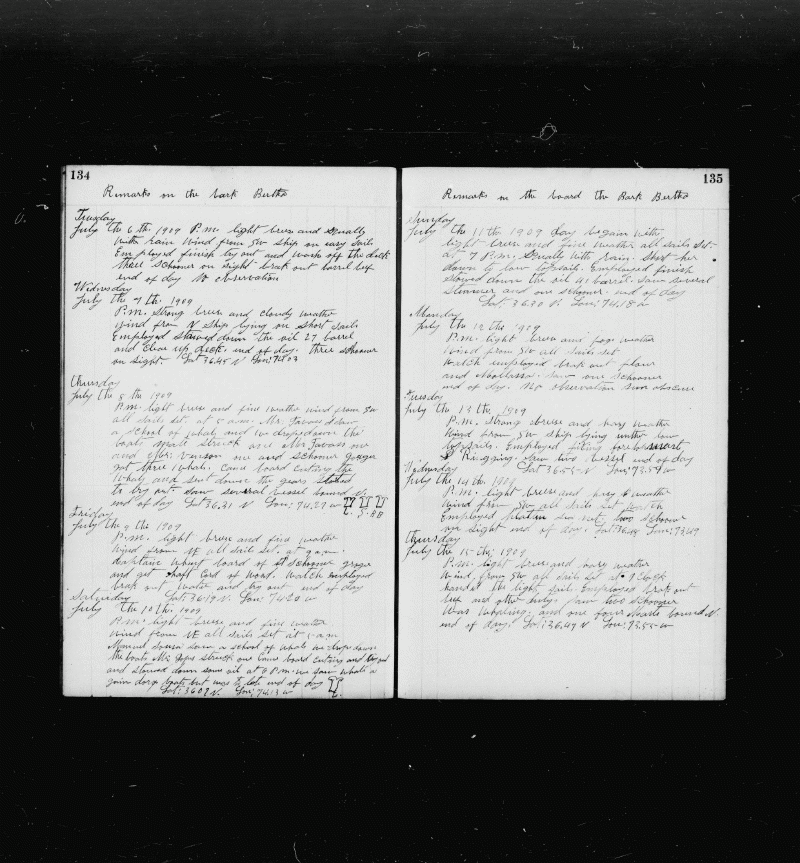 134
Remarks on the bark Bertha
Tuesday
July the 6th. 1909 P.m. light brese and Squally
with Rain Wind from SW Ship on easy Sails
Employed finish try out and wash off the deck
three Schooner on sight brak out barrel
end of day No observation
Wednesday
July the 7th. 1909
P.m. Strong brese and cloudy weather
Wind from N Ship lying on Short Sails
Employed Stowed down the oil 27 barrel
and clear up deck. end of day. three Schooner
on Sight. Lat: 36.45 N Lon: 74.03
Thursday
July the 8th. 1909
P.m. light brese and fine weather wind from SW
all Sails set. at 5 a.m. Mr. saw
a School of whale and we drop down the
boats struck one Mr one
and one and Schooner
got three whale. Came board cuting the
whale and set down the gears
to try out. Saw several Vessel bound N
end of day Lat: 36.31 N Lon: 74.27 W
Friday
July the 9th 1909
P.m. light brese and fine weather
Wind from NE all Sail set. at 9 a.m.
Captain went board of Schooner
and get half Cord of Wood. Watch employed
brak out water and try out end of day
Saturday Lat: 36.19 N. Lon: 74.20 W
July the 10th. 1909
P.m. light brese, and fine weather
Wind from NE all Sails set at 5 a.m.
Manuel Souza saw a School of whale we drop down
the boats Mr. struck one Came board cuting and
and Stowed down some oil at 6 P.m. we Saw whale
boats but was to late end of day
Lat: 36.09 N. Lon: 74.13 W
135
Remarks on the board the Bark Bertha
Sunday
July the 11th 1909 day begain with
light brese and fine weather all Sails set
at 7 P.m. Squally with rain. Short her
down to low topsails. Employed finish
Stowed down the oil 41 barrel. Saw several
Steamer and one Schooner. end of day
Lat: 36.30 N. Lon: 74.18 W
Monday
July the 12 th 1909
P.m. light breese and fogs weather
Wind from SW all sails set
Watch employed brak out flour
and Mollasses. Saw one Schooner
end of day. No observation Sun obscure
Tuesday
July the 13 th. 1909
P.m. Strong breese and hazy weather
Wind from SW Ship lying under low
topsails. Employed foretopmast
Rigging. Saw two Vessel end of day
Wednesday Lat: 36.55-N Lon: 73.59 W
July the 14 th. 1909
P.m. light breese and weather
Wind from SW all sails set Watch
Employed two Schooner
on Sight end of day. Lat: 36.48 Lon: 73.49
Thursday
July the 15 th: 1909
P.m. light breese and hazy weather
Wind from SW all sails set at 7 Oclock
handet the light Sail. Employed brak out
beef and other things Saw two Schooner
Was Whaling. and one four Masts bound N
end of day. Lat: 36.47 N Lon: 73.55 W